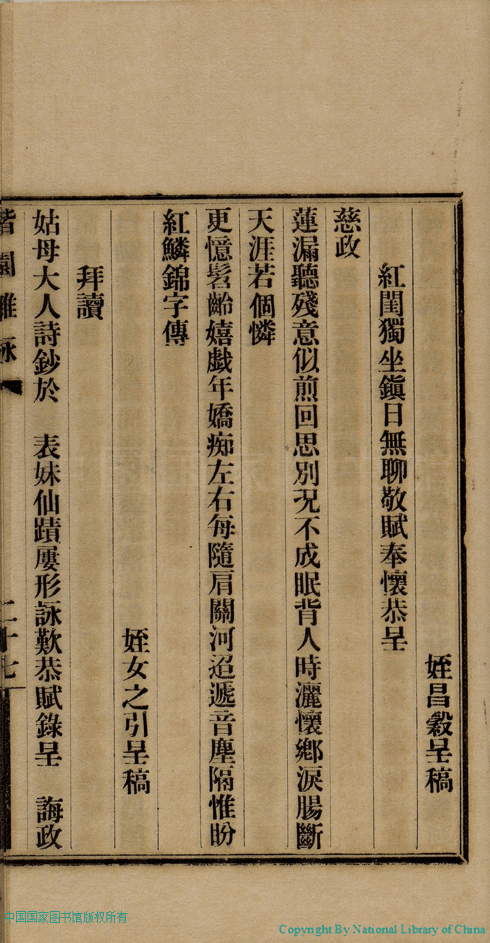 姪昌穀呈稿
紅閨獨坐鎭日無聊敬賦奉懷恭呈
慈政
蓮漏聽殘意似煎回思別況不成眠背人時灑懷鄉淚腸斷
天涯若個憐
更憶髫齡嬉戲年嬌痴左右每隨肩關河迢遞音塵隔惟盼
紅鱗錦字傳
姪女之引呈稿
拜讀
姑母大人詩鈔於 表妹仙蹟屢形詠歎恭賦錄呈 誨政
園雜詠
二十七
中国国家图书馆版权所有
Copyright By National Library of China